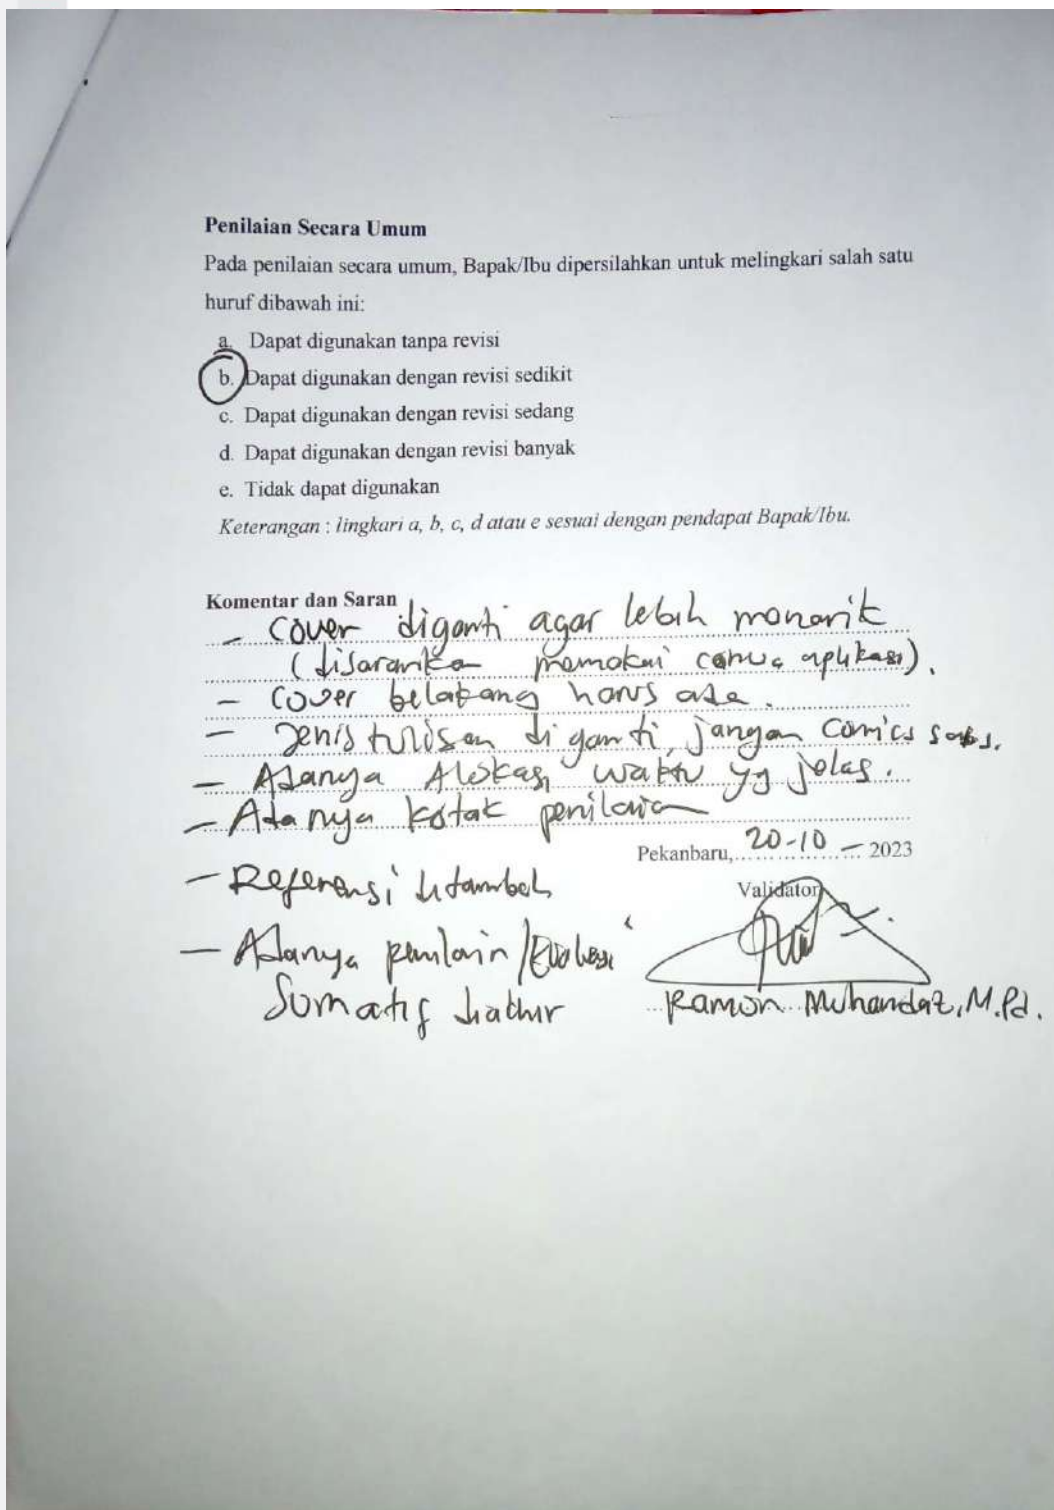 Penilaian Secara Umum
Pada penilaian secara umum, Bapak/Ibu dipersilahkan untuk melingkari salah satu
huruf dibawah ini:
a. Dapat digunakan tanpa revisi
b. Dapat digunakan dengan revisi sedikit
c. Dapat digunakan dengan revisi sedang
d. Dapat digunakan dengan revisi banyak
e. Tidak dapat digunakan
Keterangan : lingkari a, b, c, d atau e sesuai dengan pendapat Bapak/Ibu.
Komentar dan Saran
- Cover diganti agar lebih menarik
(disarankan memakai canva aplikasi).
- Cover belakang harus ada.
- Jenis tulisan diganti, jangan Comics sans.
- Adanya Alokasi waktu yg jelas.
- Adanya kotak penilaian
Pekanbaru, 20-10-2023
- Referensi ditambah
Validator
- Adanya penilain/Evaluasi
Sumatif
Ramon Muhandaz, M.Pd.